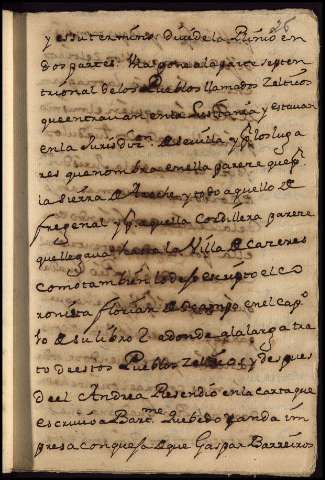 26
y essu termino: divide la Plinio en
dos partes: Una pone a la parte septen
trional de los Pueblos llamados Zelticos
que entravan en la Lusitania, y estavan
en la Jurisdicon: de Sevilla y pr los luga
res que nombra en ella parece que pr
la Sierra de Aroche, y todo aquello de
fregenal y pr aquella Cordillera parece
que llegava hasta la Villa de Cazeres
como tambien lo dejo escripto el Co
ronista florian de Ocampo en el capo
lo de su libro 2 adonde a la larga tra
to de estos Pueblos Zelticos, y despues
de el Andrea Resendio en la carta que
escrivio a Barme Quebedo q anda im
presa con quexa de que Gaspar Barreiros